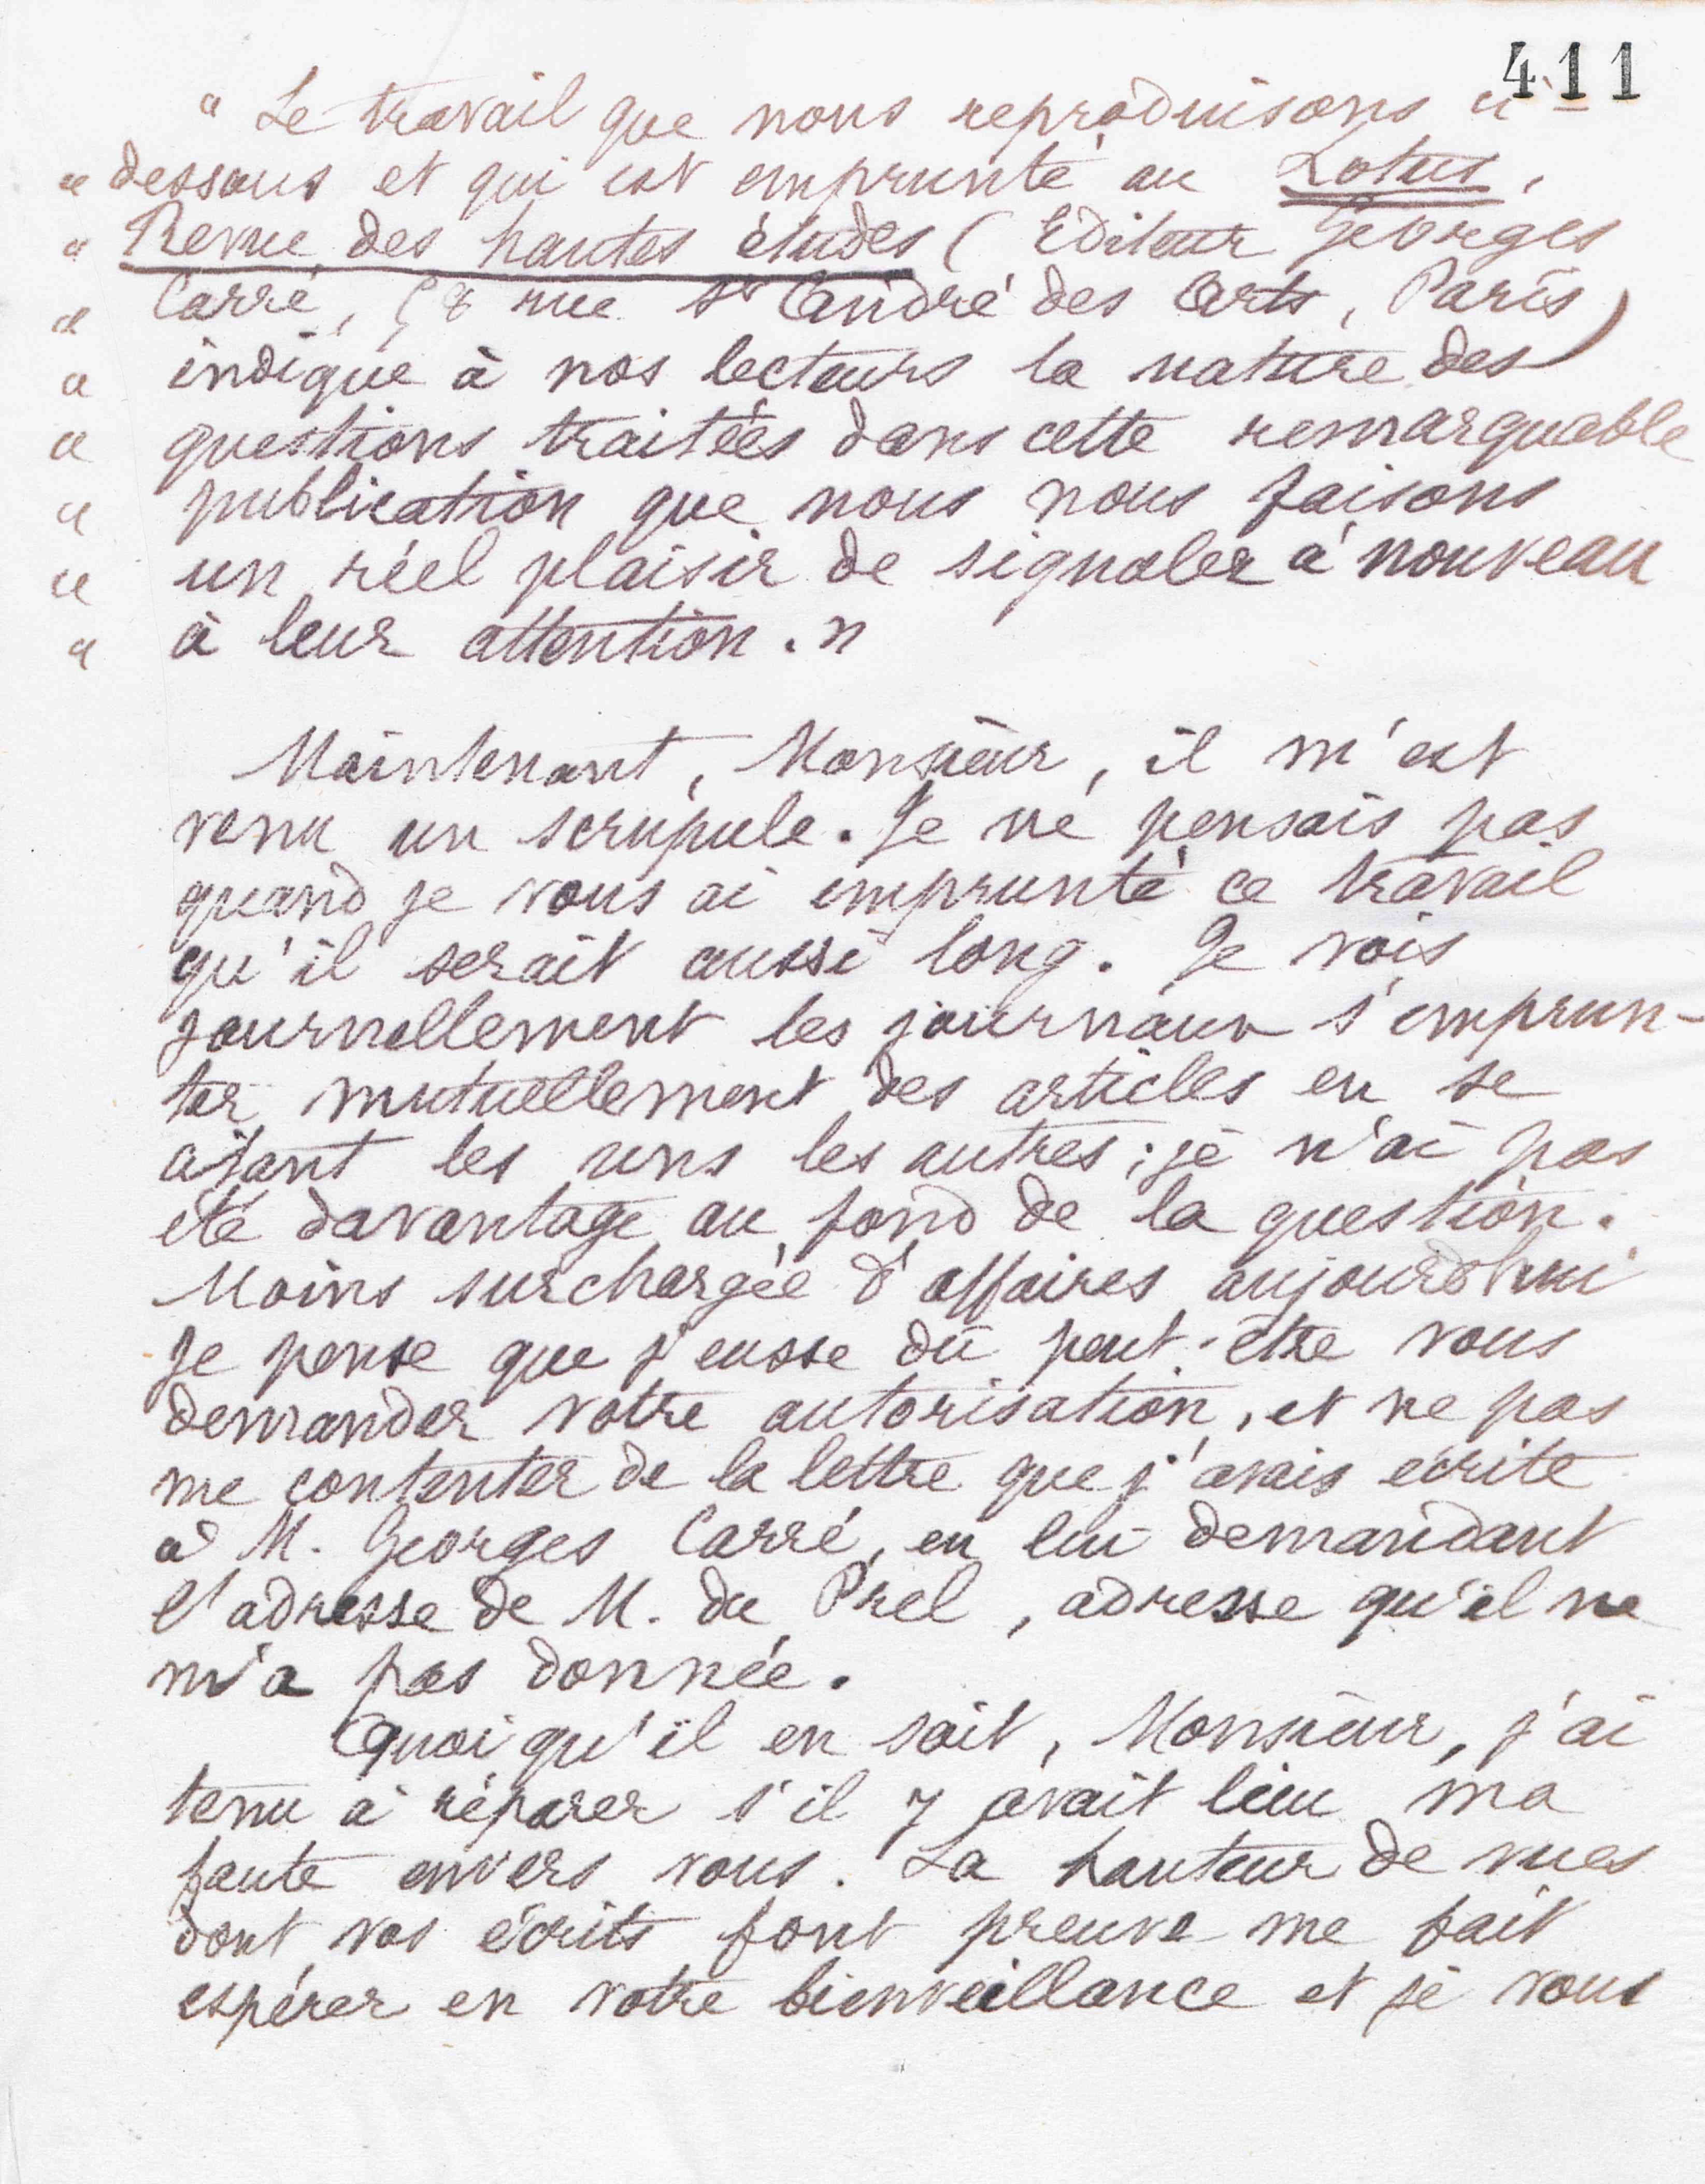 411
" Le travail que nous reproduisons ci-
" dessous et qui est emprunté au Lotus,
" Revue des hautes études (Editeur Georges
" Carré, 58 rue St André des Arts, Paris)
" indique à nos lecteurs la nature des
" questions traitées dans cette remarquable
" publication que nous nous faisons
" un réel plaisir de signaler à nouveau
" à leur attention. "
Maintenant, Monsieur, il m'est
venu un scrupule. Je ne pensais pas
quand je vous ai emprunté ce travail
qu'il serait aussi long. Je vois
journellement les journaux s'emprun-
ter mutuellement des articles en se
citant les uns les autres; je n'ai pas
été davantage au fond de la question.
Moins surchargée d'affaires aujourd'hui
je pense que j'eusse dû peut-être vous
demander votre autorisation, et ne pas
me contenter de la lettre que j'avais écrite
à M. Georges Carré, en lui demandant
l'adresse de M. du Prel, adresse qu'il ne
m'a pas donnée.
Quoiqu'il en soit, Monsieur, j'ai
tenu à réparer s'il y avait lieu ma
faute envers vous. La hauteur de vues
dont vos écrits font preuve me fait
espérer en votre bienveillance et je vous